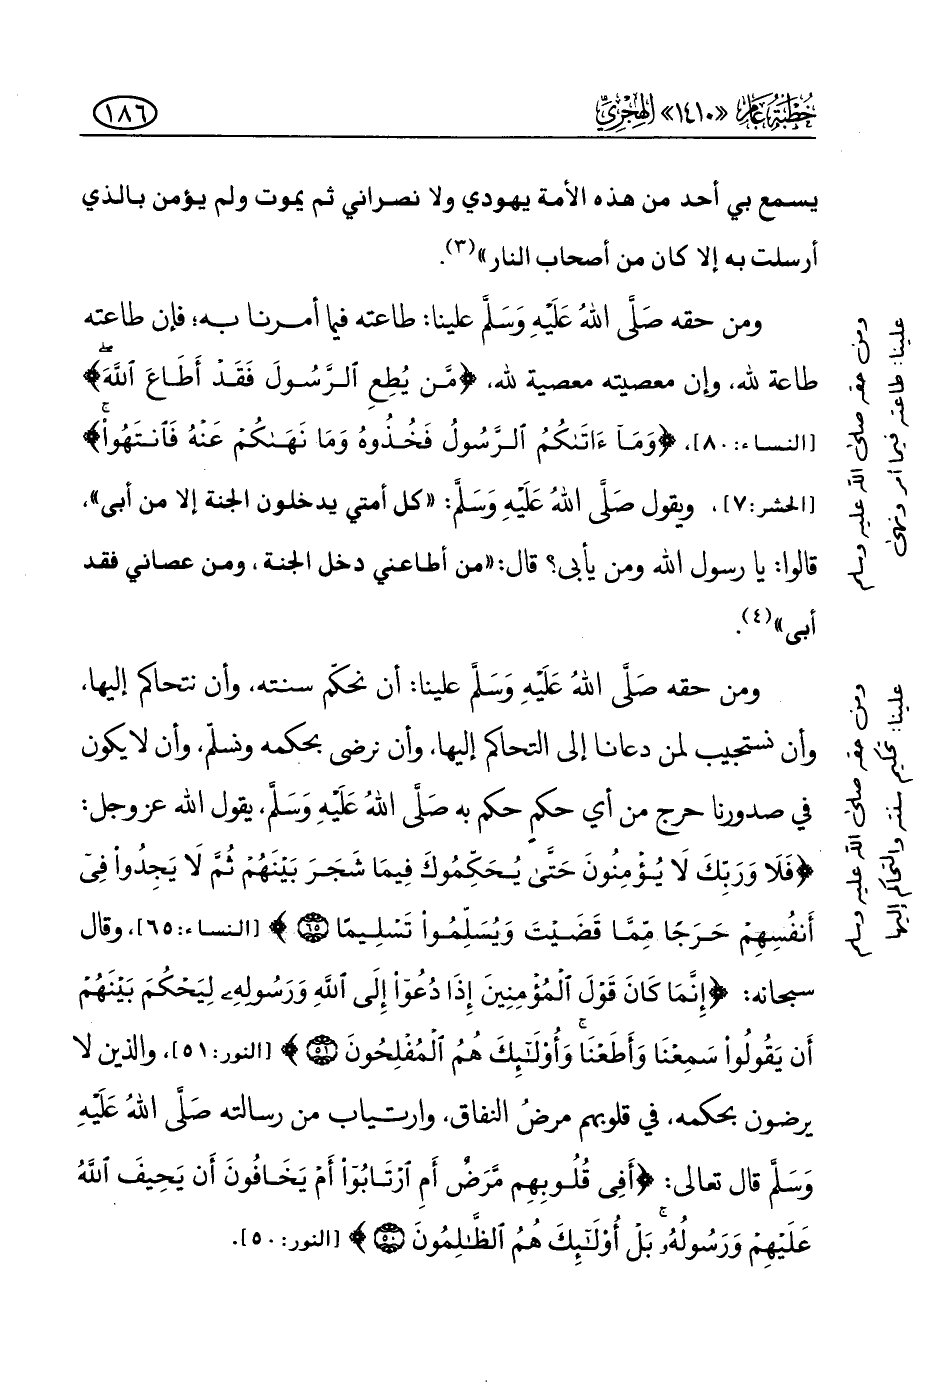 خُطْبَةُ عَامِ «١٤١٠» الهِجْرِيِّ
١٨٦
يسمع بي أحد من هذه الأمة يهودي ولا نصراني ثم يموت ولم يؤمن بالذي
أرسلت به إلا كان من أصحاب النار»(٣).
ومن حقه صَلَّى اللهُ عَلَيْهِ وَسَلَّم علينا: طاعته فيما أمرنا به؛ فإن طاعته
طاعة لله، وإن معصيته معصية لله، ﴿مَّن يُطِعِ ٱلرَّسُولَ فَقَدْ أَطَاعَ ٱللَّهَۖ﴾
[النساء:٨٠]، ﴿وَمَآ ءَاتَىٰكُمُ ٱلرَّسُولُ فَخُذُوهُ وَمَا نَهَىٰكُمْ عَنْهُ فَٱنتَهُوا۟ۚ﴾
[الحشر:٧]، ويقول صَلَّى اللهُ عَلَيْهِ وَسَلَّم: «كل أمتي يدخلون الجنة إلا من أبى»،
قالوا: يا رسول الله ومن يأبى؟ قال: «من أطاعني دخل الجنة، ومن عصاني فقد
أبى»(٤).
ومن حقه صَلَّى اللهُ عَلَيْهِ وَسَلَّم علينا: أن نحكّم سنته، وأن نتحاكم إليها،
وأن نستجيب لمن دعانا إلى التحاكم إليها، وأن نرضى بحكمه ونسلّم، وأن لا يكون
في صدورنا حرج من أي حكمٍ حكم به صَلَّى اللهُ عَلَيْهِ وَسَلَّم، يقول الله عز وجل:
﴿فَلَا وَرَبِّكَ لَا يُؤْمِنُونَ حَتَّىٰ يُحَكِّمُوكَ فِيمَا شَجَرَ بَيْنَهُمْ ثُمَّ لَا يَجِدُوا۟ فِىٓ
أَنفُسِهِمْ حَرَجًا مِّمَّا قَضَيْتَ وَيُسَلِّمُوا۟ تَسْلِيمًا ۝٦٥﴾ [النساء:٦٥]، وقال
سبحانه: ﴿إِنَّمَا كَانَ قَوْلَ ٱلْمُؤْمِنِينَ إِذَا دُعُوٓا۟ إِلَى ٱللَّهِ وَرَسُولِهِۦ لِيَحْكُمَ بَيْنَهُمْ
أَن يَقُولُوا۟ سَمِعْنَا وَأَطَعْنَاۚ وَأُو۟لَٰٓئِكَ هُمُ ٱلْمُفْلِحُونَ ۝٥١﴾ [النور:٥١]، والذين لا
يرضون بحكمه، في قلوبهم مرضُ النفاق، وارتياب من رسالته صَلَّى اللهُ عَلَيْهِ
وَسَلَّم قال تعالى: ﴿أَفِى قُلُوبِهِم مَّرَضٌ أَمِ ٱرْتَابُوٓا۟ أَمْ يَخَافُونَ أَن يَحِيفَ ٱللَّهُ
عَلَيْهِمْ وَرَسُولُهُۥۚ بَلْ أُو۟لَٰٓئِكَ هُمُ ٱلظَّٰلِمُونَ ۝٥٠﴾ [النور:٥٠].
ومن حقه صلى الله عليه وسلم
علينا: طاعته فيما أمر ونهى
ومن حقه صلى الله عليه وسلم
علينا: تحكيم سنته والتحاكم إليها